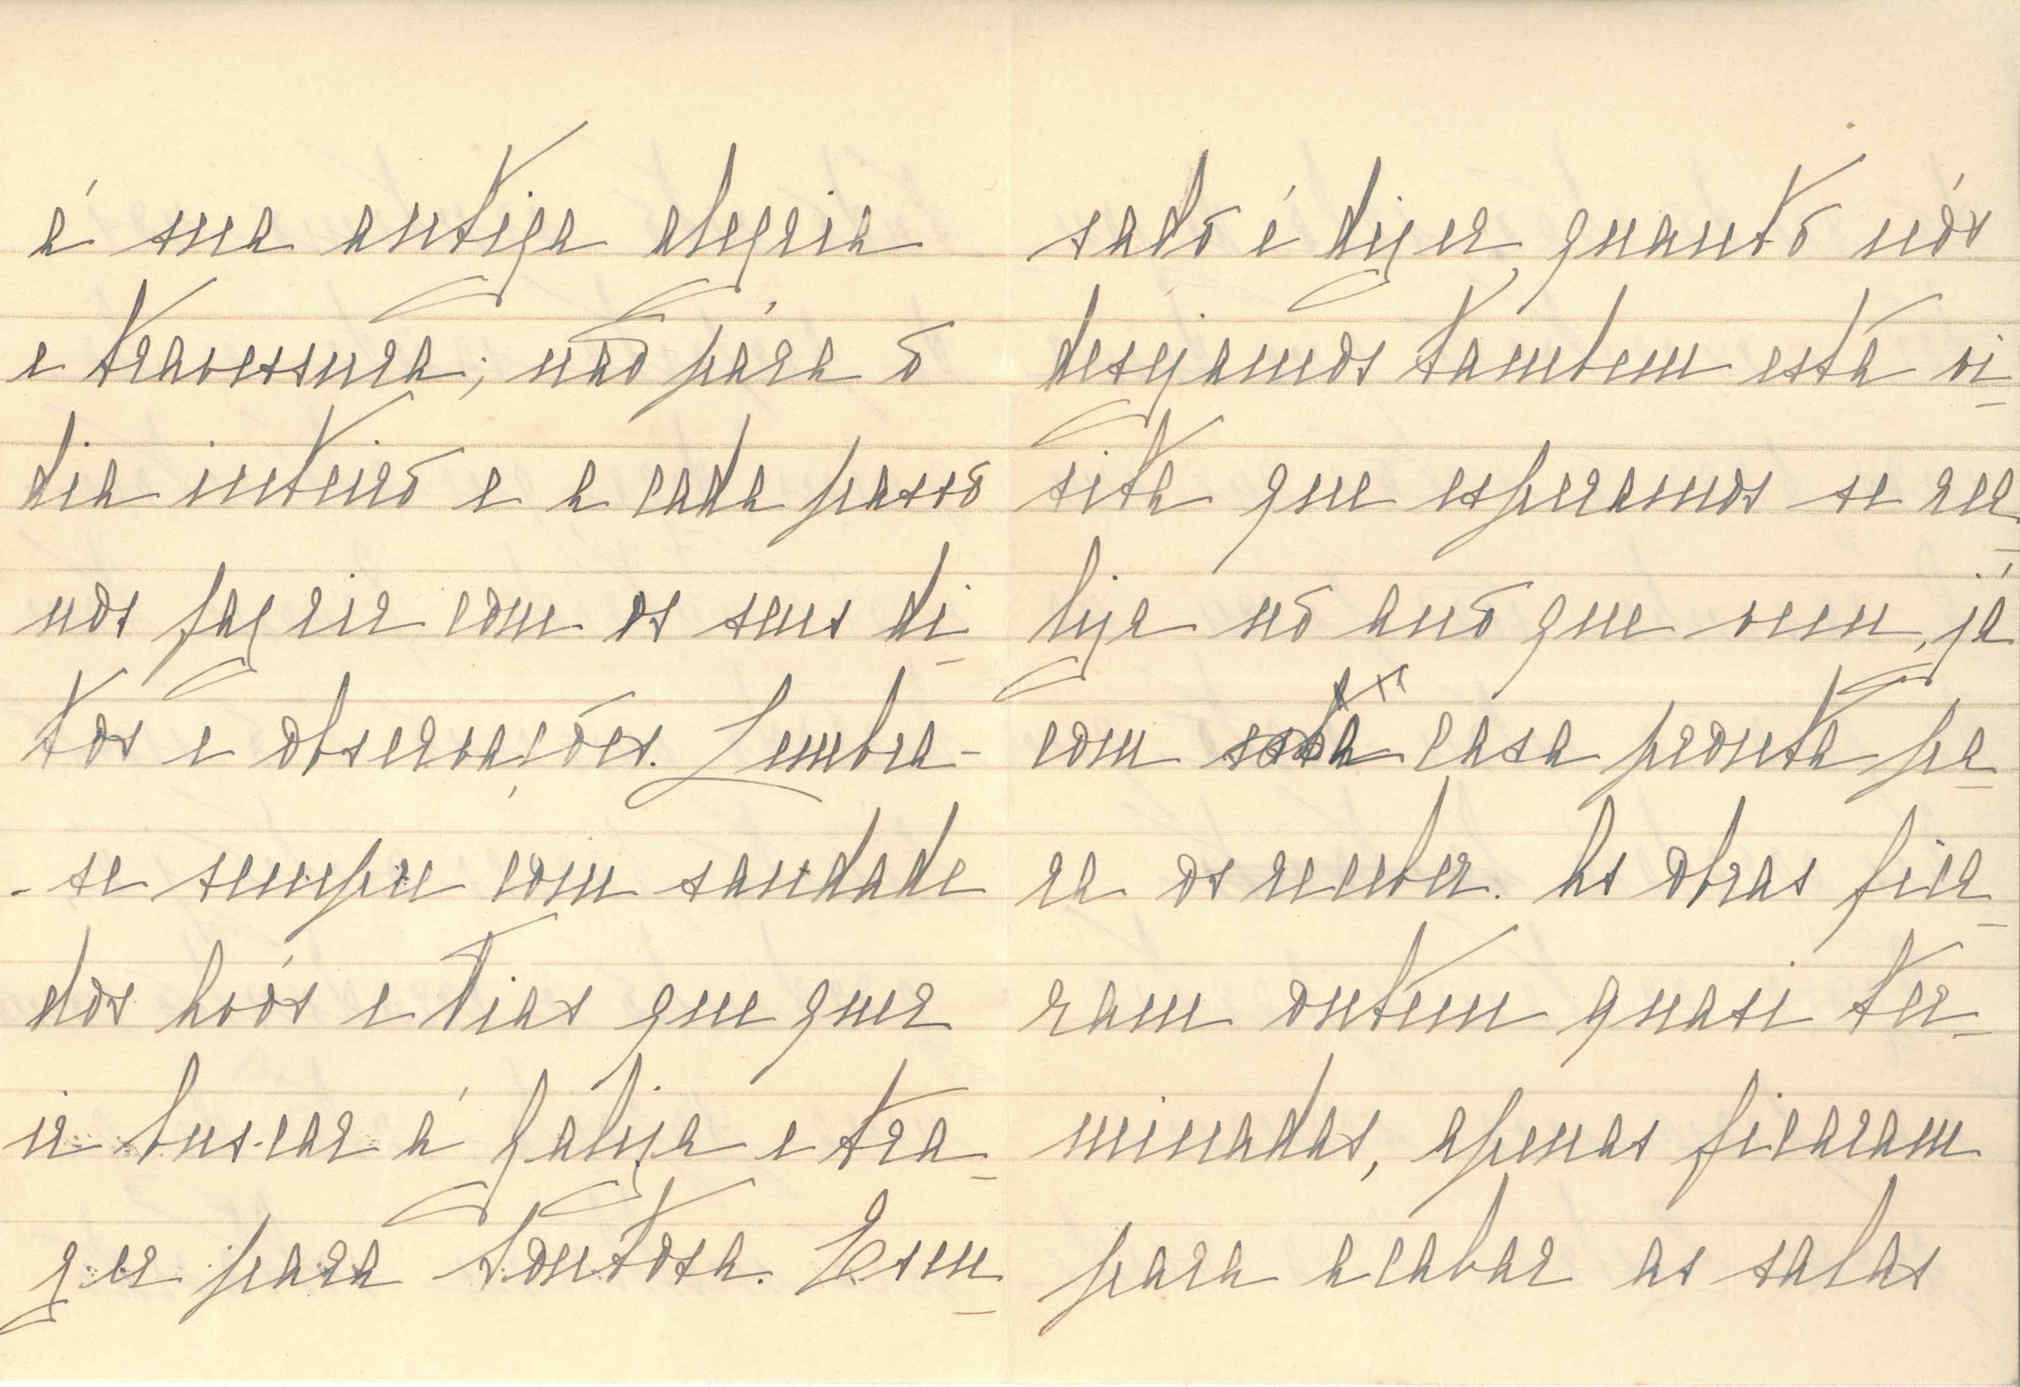 á sua antiga alegria
e travessura; não pára o
dia inteiro e a cada passo
nos faz rir com os seus di-
tos e observações. Lembra-
-se sempre com saudade
dos bvós e Tias que quer
ir buscar á Galiza e tra-
zer para Tontosa. Escu-
sado é dizer, quanto nós
desejamos tambem esta vi-
sita que esperamos se rea-
lize no ano que vem, já
com esta casa pronta pa-
ra os receber. As obras fica-
ram ontem quasi ter-
minadas, apenas ficaram
para acabar as salas